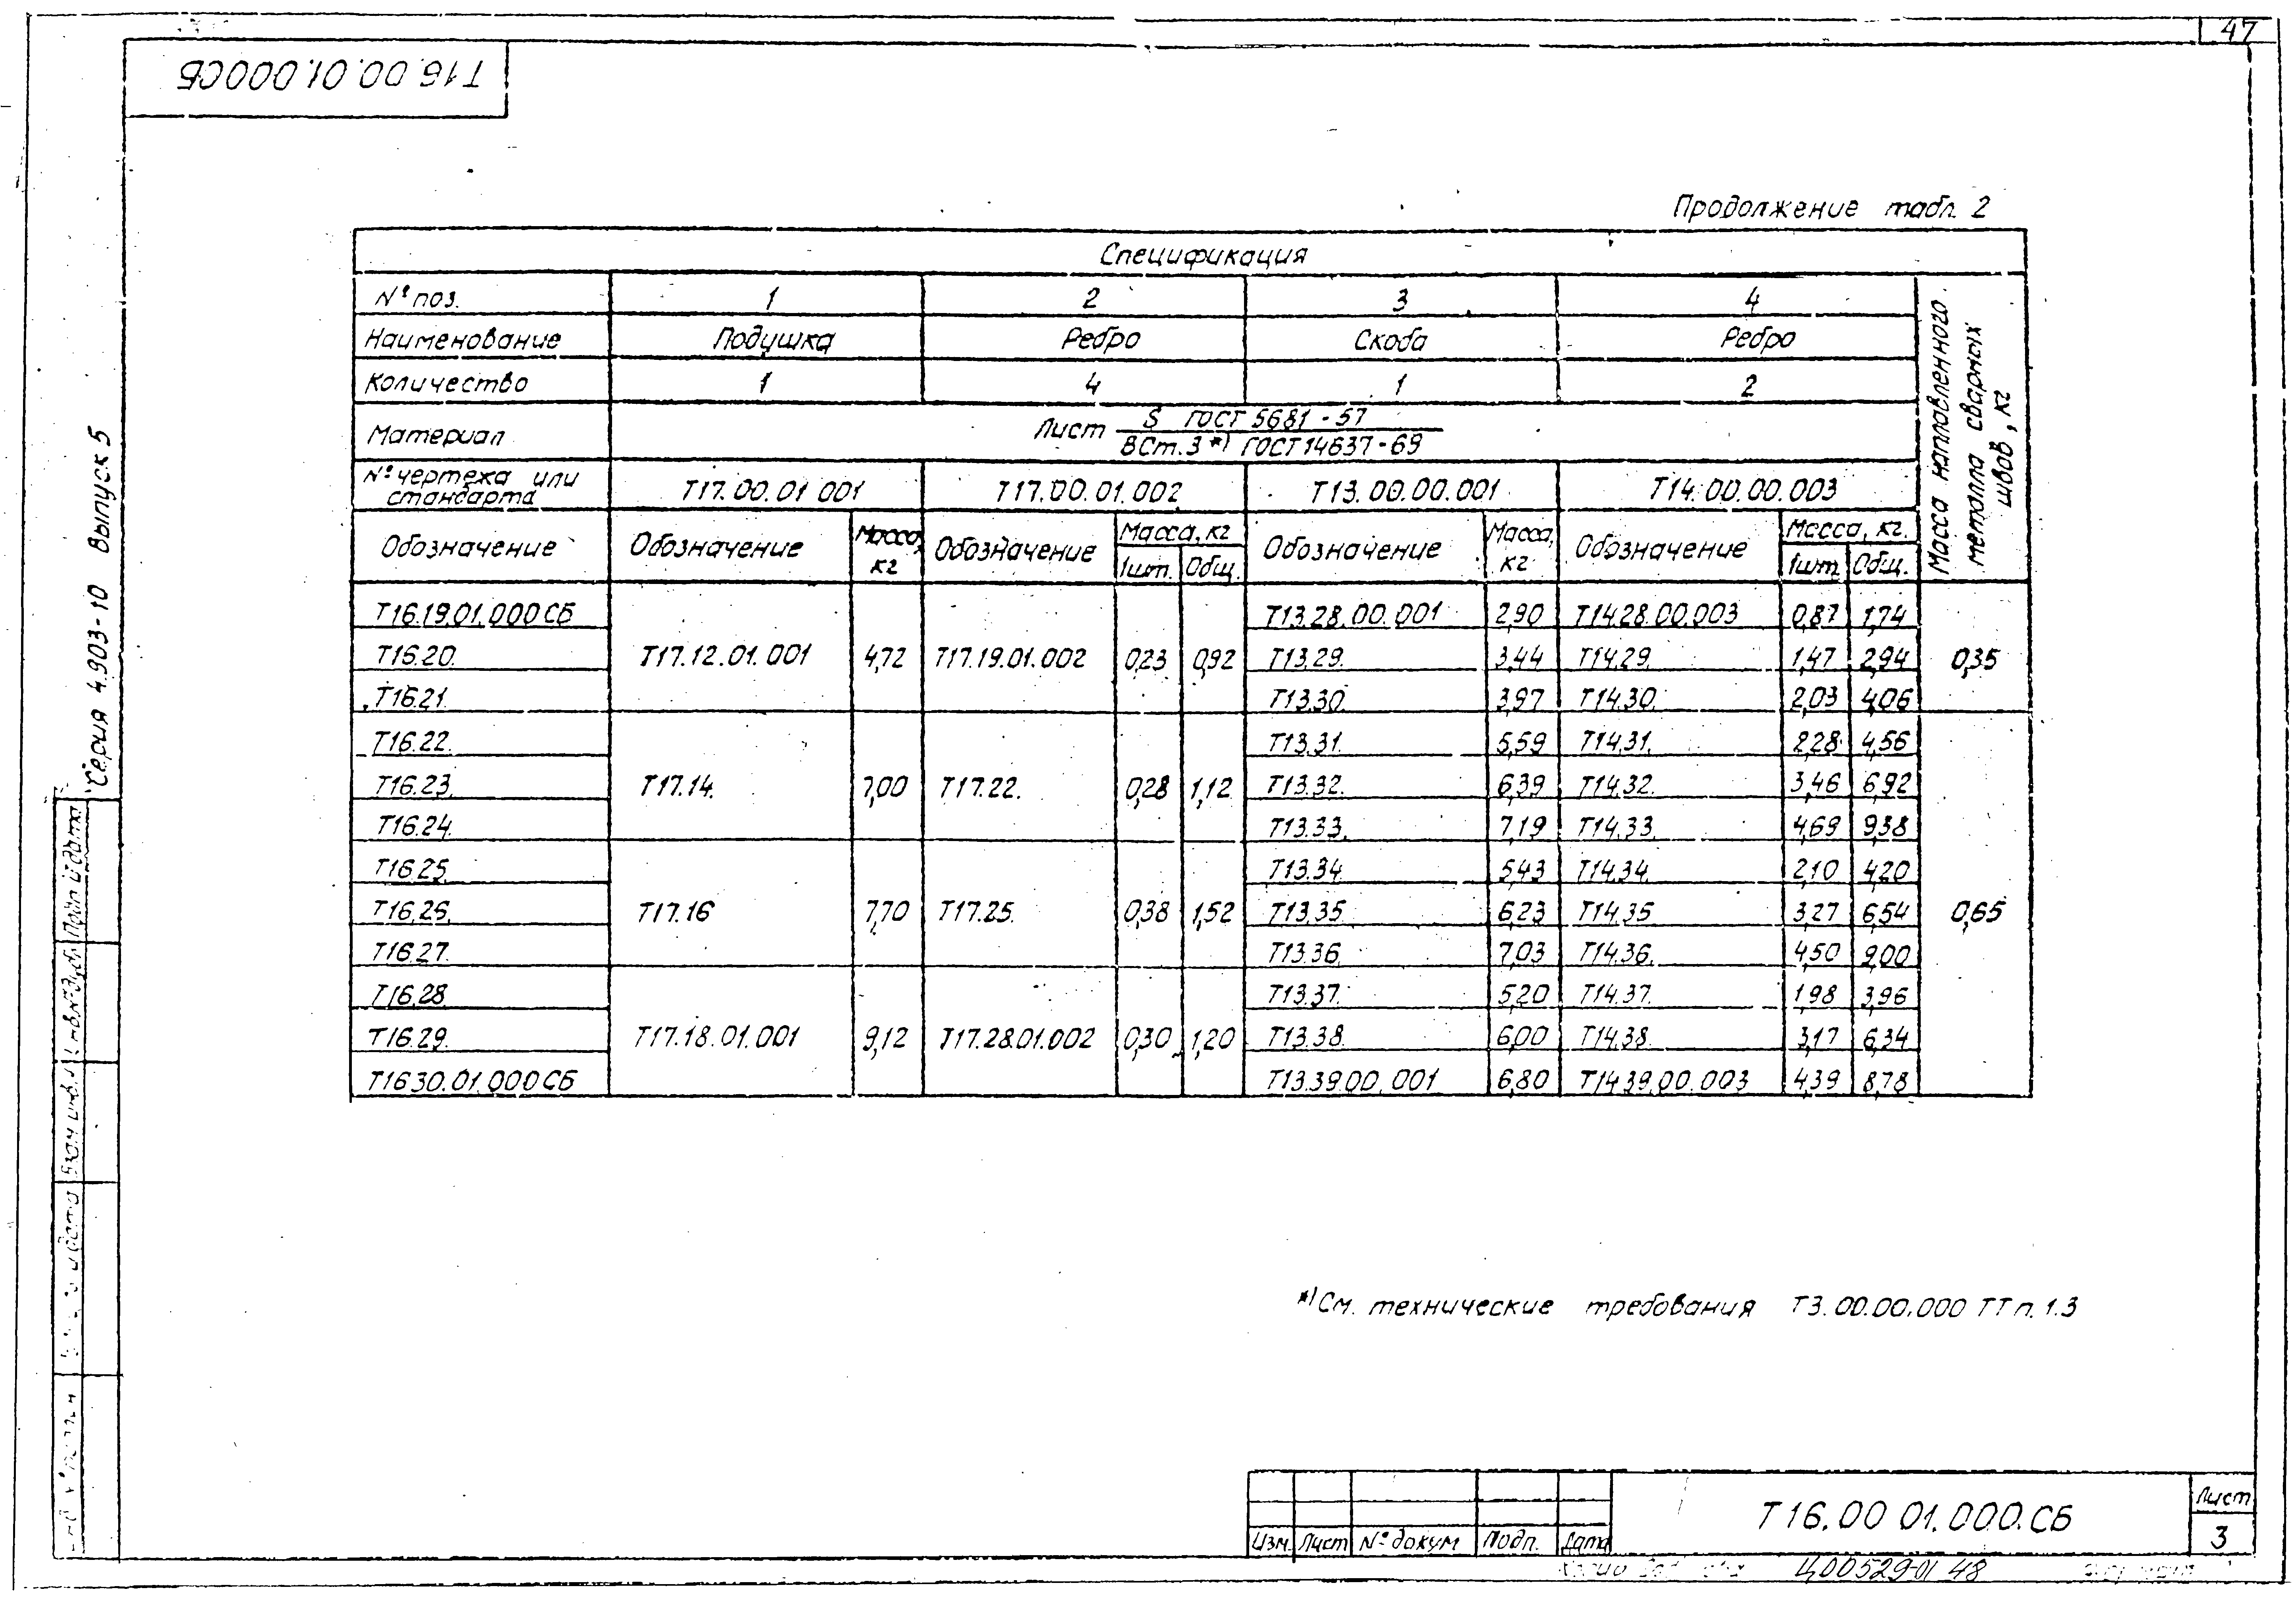 47
Т16.00.01.000СБ
Продолжение табл. 2
Спецификация
№ поз. 1 2 3 4
Масса наплавленного металла сварных швов, кг
Наименование Подушка Ребро Скоба Ребро
Количество 1 4 1 2
Материал Лист S ГОСТ 5681-57
ВСт.3 *) ГОСТ 14637-69
№ чертежа или стандарта Т17.00.01.001 Т17.00.01.002 Т13.00.00.001 Т14.00.00.003
Обозначение Обозначение Масса, кг Обозначение Масса, кг 1шт. Общ. Обозначение Масса, кг Обозначение Масса, кг. 1шт Общ.
Т16.19.01.000СБ Т13.28.00.001 2,90 Т14.28.00.003 0,87 1,74
Т16.20. Т17.12.01.001 4,72 Т17.19.01.002 0,23 0,92 Т13.29. 3,44 Т14.29. 1,47 2,94 0,35
Т16.21. Т13.30. 3,97 Т14.30. 2,03 4,06
Т16.22. Т13.31. 5,59 Т14.31. 2,28 4,56
Т16.23. Т17.14. 7,00 Т17.22. 0,28 1,12 Т13.32. 6,39 Т14.32. 3,46 6,92
Т16.24. Т13.33. 7,19 Т14.33. 4,69 9,38
Т16.25. Т13.34. 5,43 Т14.34. 2,10 4,20
Т16.26. Т17.16 7,70 Т17.25. 0,38 1,52 Т13.35. 6,23 Т14.35 3,27 6,54 0,65
Т16.27. Т13.36. 7,03 Т14.36. 4,50 9,00
Т16.28. Т13.37. 5,20 Т14.37. 1,98 3,96
Т16.29. Т17.18.01.001 9,12 Т17.28.01.002 0,30 1,20 Т13.38. 6,00 Т14.38. 3,17 6,34
Т16.30.01.000СБ Т13.39.00.001 6,80 Т14.39.00.003 4,39 8,78
*) См. технические требования Т3.00.00.000 ТТ п. 1.3
Серия 4.903-10 Выпуск 5
Подп и дата
Взам инв.
Изм. Лист № докум Подп. Дата
Т16.00 01.000.СБ
Лист
3
Ц00529-01 48